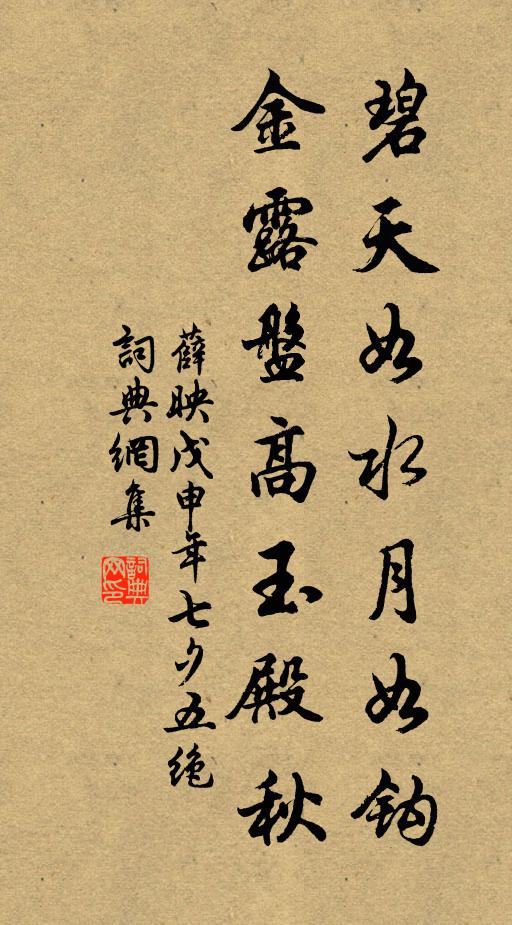 碧天如水月如鈎
金露盤高玉殿秋
薛映戊申年七夕五绝
詞典網集
詞典網印